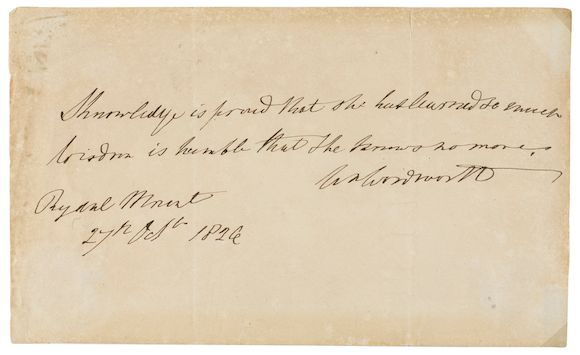 Knowledge is proud that she has learned so much
Wisdom is humble that She knows no more.
Wm Wordsworth
Rydal Mount
27th Octbr 1826